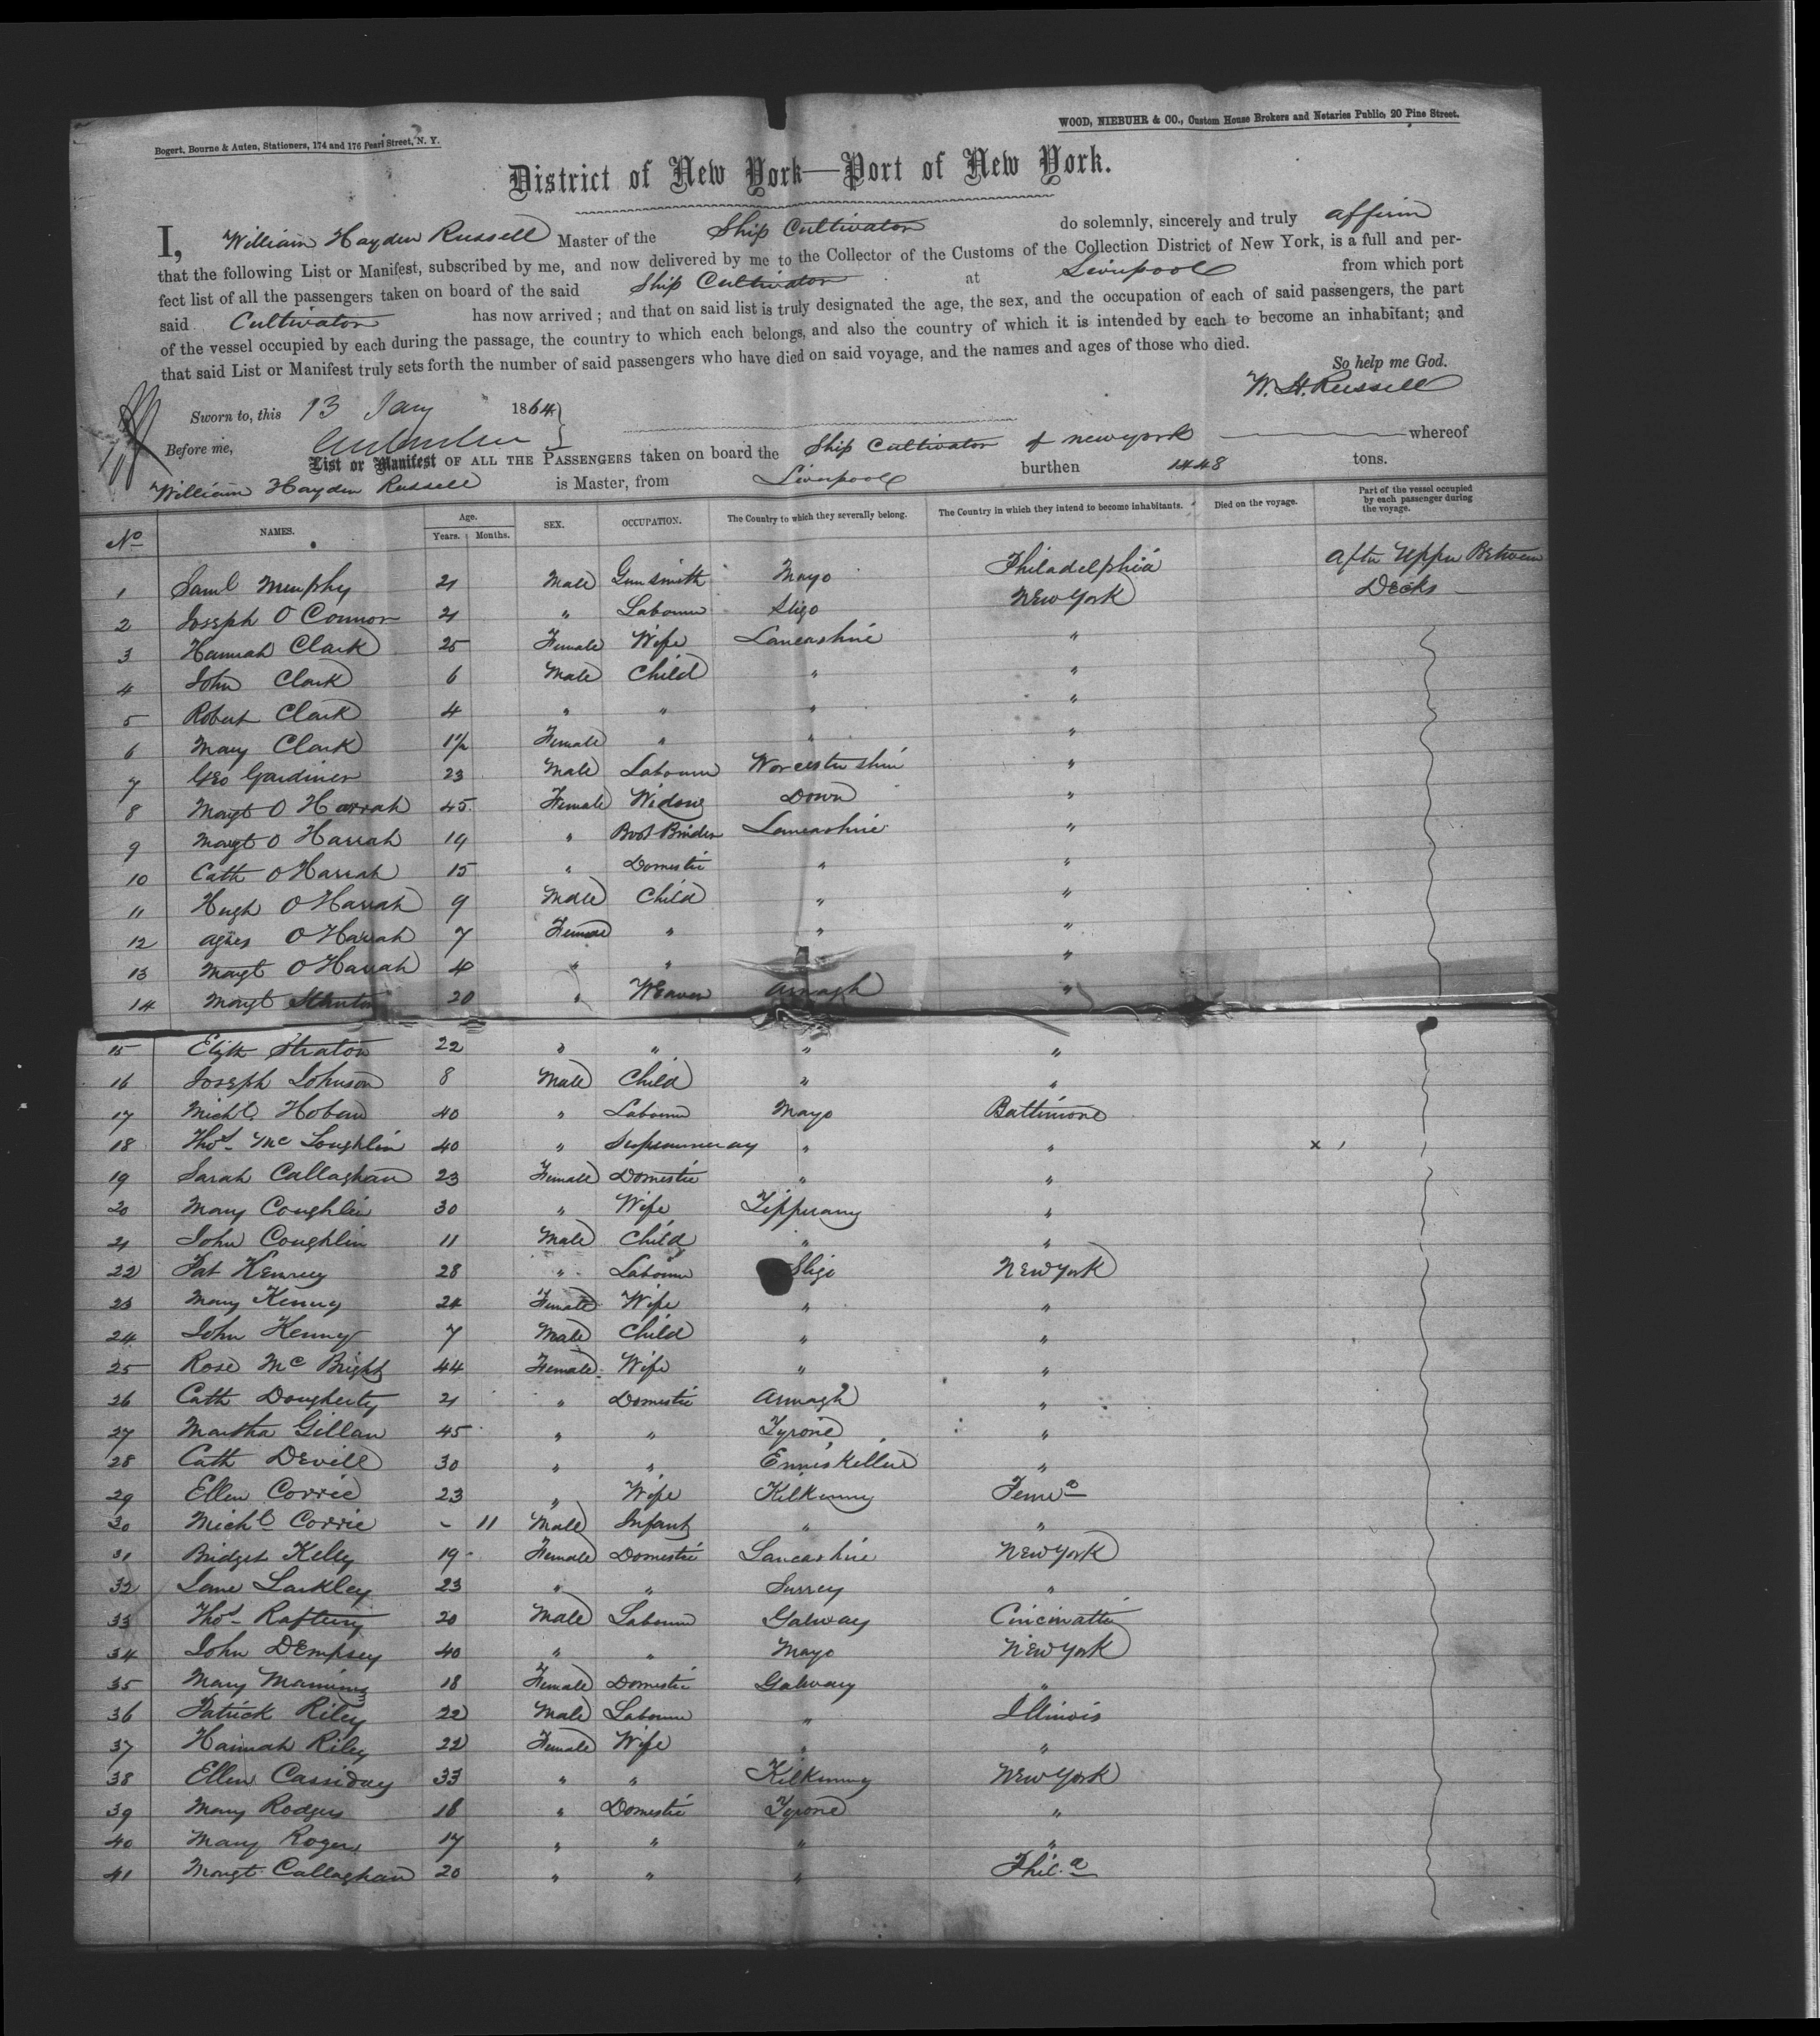 Bogert, Bourne & Auten, Stationers, 174 and 176 Pearl Street, N. Y.
WOOD, NIEBUHR & CO., Custom House Brokers and Notaries Public, 20 Pine Street.
District of New York—Port of New York.
I, William Hayden Russell Master of the Ship Cultivator do solemnly, sincerely and truly affirm
that the following List or Manifest, subscribed by me, and now delivered by me to the Collector of the Customs of the Collection District of New York, is a full and per-
fect list of all the passengers taken on board of the said Ship Cultivator at Liverpool from which port
said Cultivator has now arrived; and that on said list is truly designated the age, the sex, and the occupation of each of said passengers, the part
of the vessel occupied by each during the passage, the country to which each belongs, and also the country of which it is intended by each to become an inhabitant; and
that said List or Manifest truly sets forth the number of said passengers who have died on said voyage, and the names and ages of those who died.
So help me God.
W. H. Russell
Sworn to, this 13 Jany 1864
Before me,
List or Manifest OF ALL THE PASSENGERS taken on board the Ship Cultivator of New York whereof
William Hayden Russell is Master, from Liverpool burthen 1448 tons.
No NAMES. Age. Years. Months. SEX. OCCUPATION. The Country to which they severally belong. The Country in which they intend to become inhabitants. Died on the voyage. Part of the vessel occupied by each passenger during the voyage.
1 Saml Murphy 21 Male Gunsmith Mayo Philadelphia After Upper Between
2 Joseph O Connor 21 " Labourer Sligo New York Decks
3 Hannah Clark 25 Female Wife Lancashire "
4 John Clark 6 Male Child " "
5 Robert Clark 4 " " " "
6 Mary Clark 1½ Female " " "
7 Geo Gardiner 23 Male Labourer Worcestershire "
8 Margt O Harrah 45 Female Widow Down "
9 Margt O Harrah 19 " Boot Binder Lancashire "
10 Cath O Harrah 15 " Domestic " "
11 Hugh O Harrah 9 Male Child " "
12 Agnes O Harrah 7 Female " " "
13 Margt O Harrah 4 " " "
14 Margt 20 " Weaver Armagh "
15 Elizth Straton 22 " " " "
16 Joseph Johnson 8 Male Child " "
17 Michl Hoban 40 " Labourer Mayo Baltimore
18 Thos Mc Loughlin 40 " " " x
19 Sarah Callaghan 23 Female Domestic " "
20 Mary Coughlin 30 " Wife Tipperary "
21 John Coughlin 11 Male Child " "
22 Pat Kenney 28 " Labourer Sligo New York
23 Mary Kenny 24 Female Wife " "
24 John Kenny 7 Male Child " "
25 Rose Mc Bright 44 Female Wife " "
26 Cath Dougherty 21 " Domestic Armagh "
27 Martha Gillan 45 " " Tyrone "
28 Cath Devill 30 " " Enniskillen "
29 Ellen Corrie 23 " Wife Kilkenny
30 Michl Corrie - 11 Male Infant " "
31 Bridget Kelly 19 Female Domestic Lancashire New York
32 Jane Larkley 23 " " Surrey "
33 Thos Raftery 20 Male Labourer Galway Cincinatti
34 John Dempsey 40 " " Mayo New York
35 Mary Manning 18 Female Domestic Galway "
36 Patrick Riley 22 Male Labourer " Illinois
37 Hannah Riley 22 Female Wife " "
38 Ellen Cassiday 33 " " Kilkenny New York
39 Mary Rodgers 18 " Domestic Tyrone "
40 Mary Rogers 17 " " " "
41 Margt Callaghan 20 " " " Phila